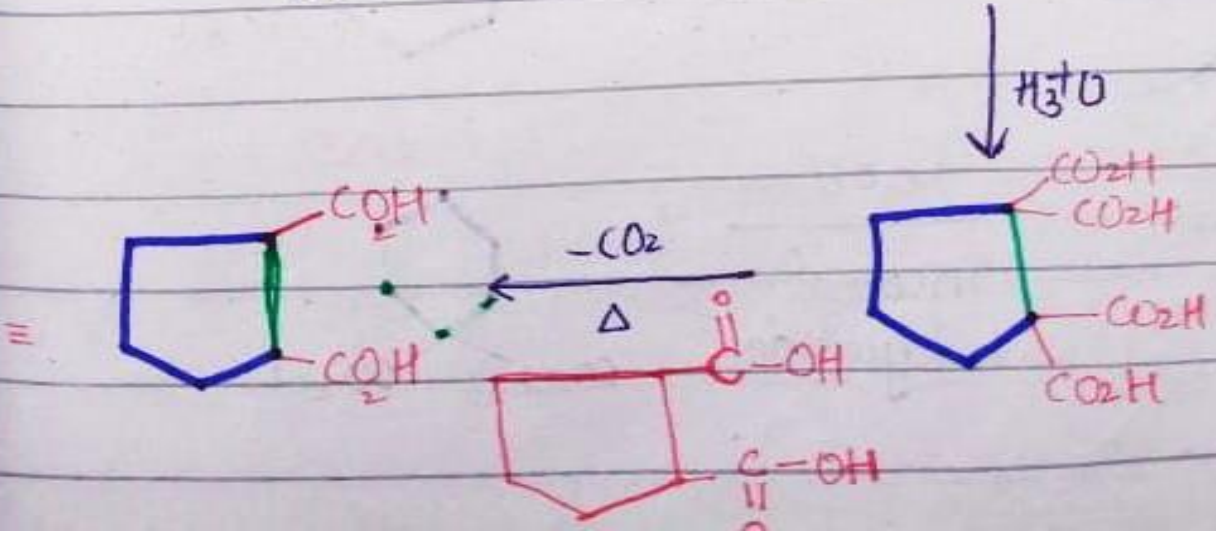 H₃⁺O
CO₂H
CO₂H
CO₂H
CO₂H
-CO₂
Δ
≡
CO₂H
CO₂H
O
||
C-OH
C-OH
||
O